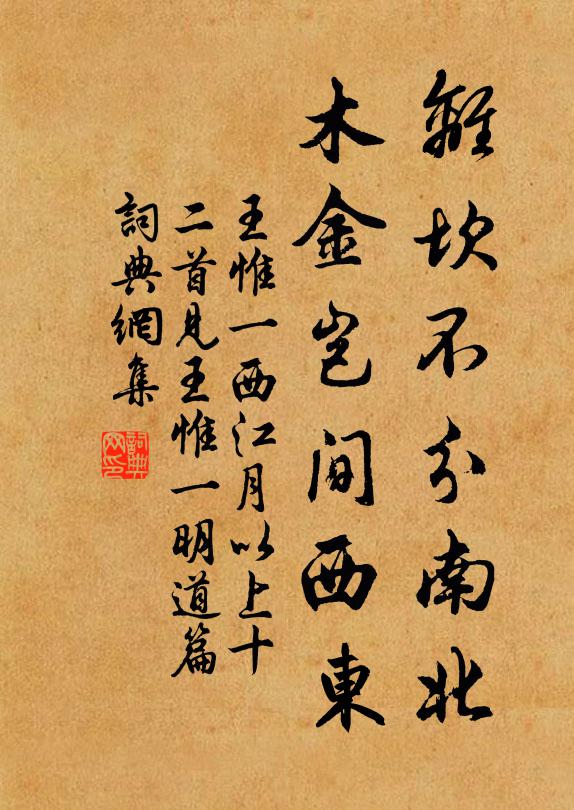 離坎不分南北
木金豈間西東
王惟一西江月以上十
二首見王惟一明道篇
詞典網集
詞典網印